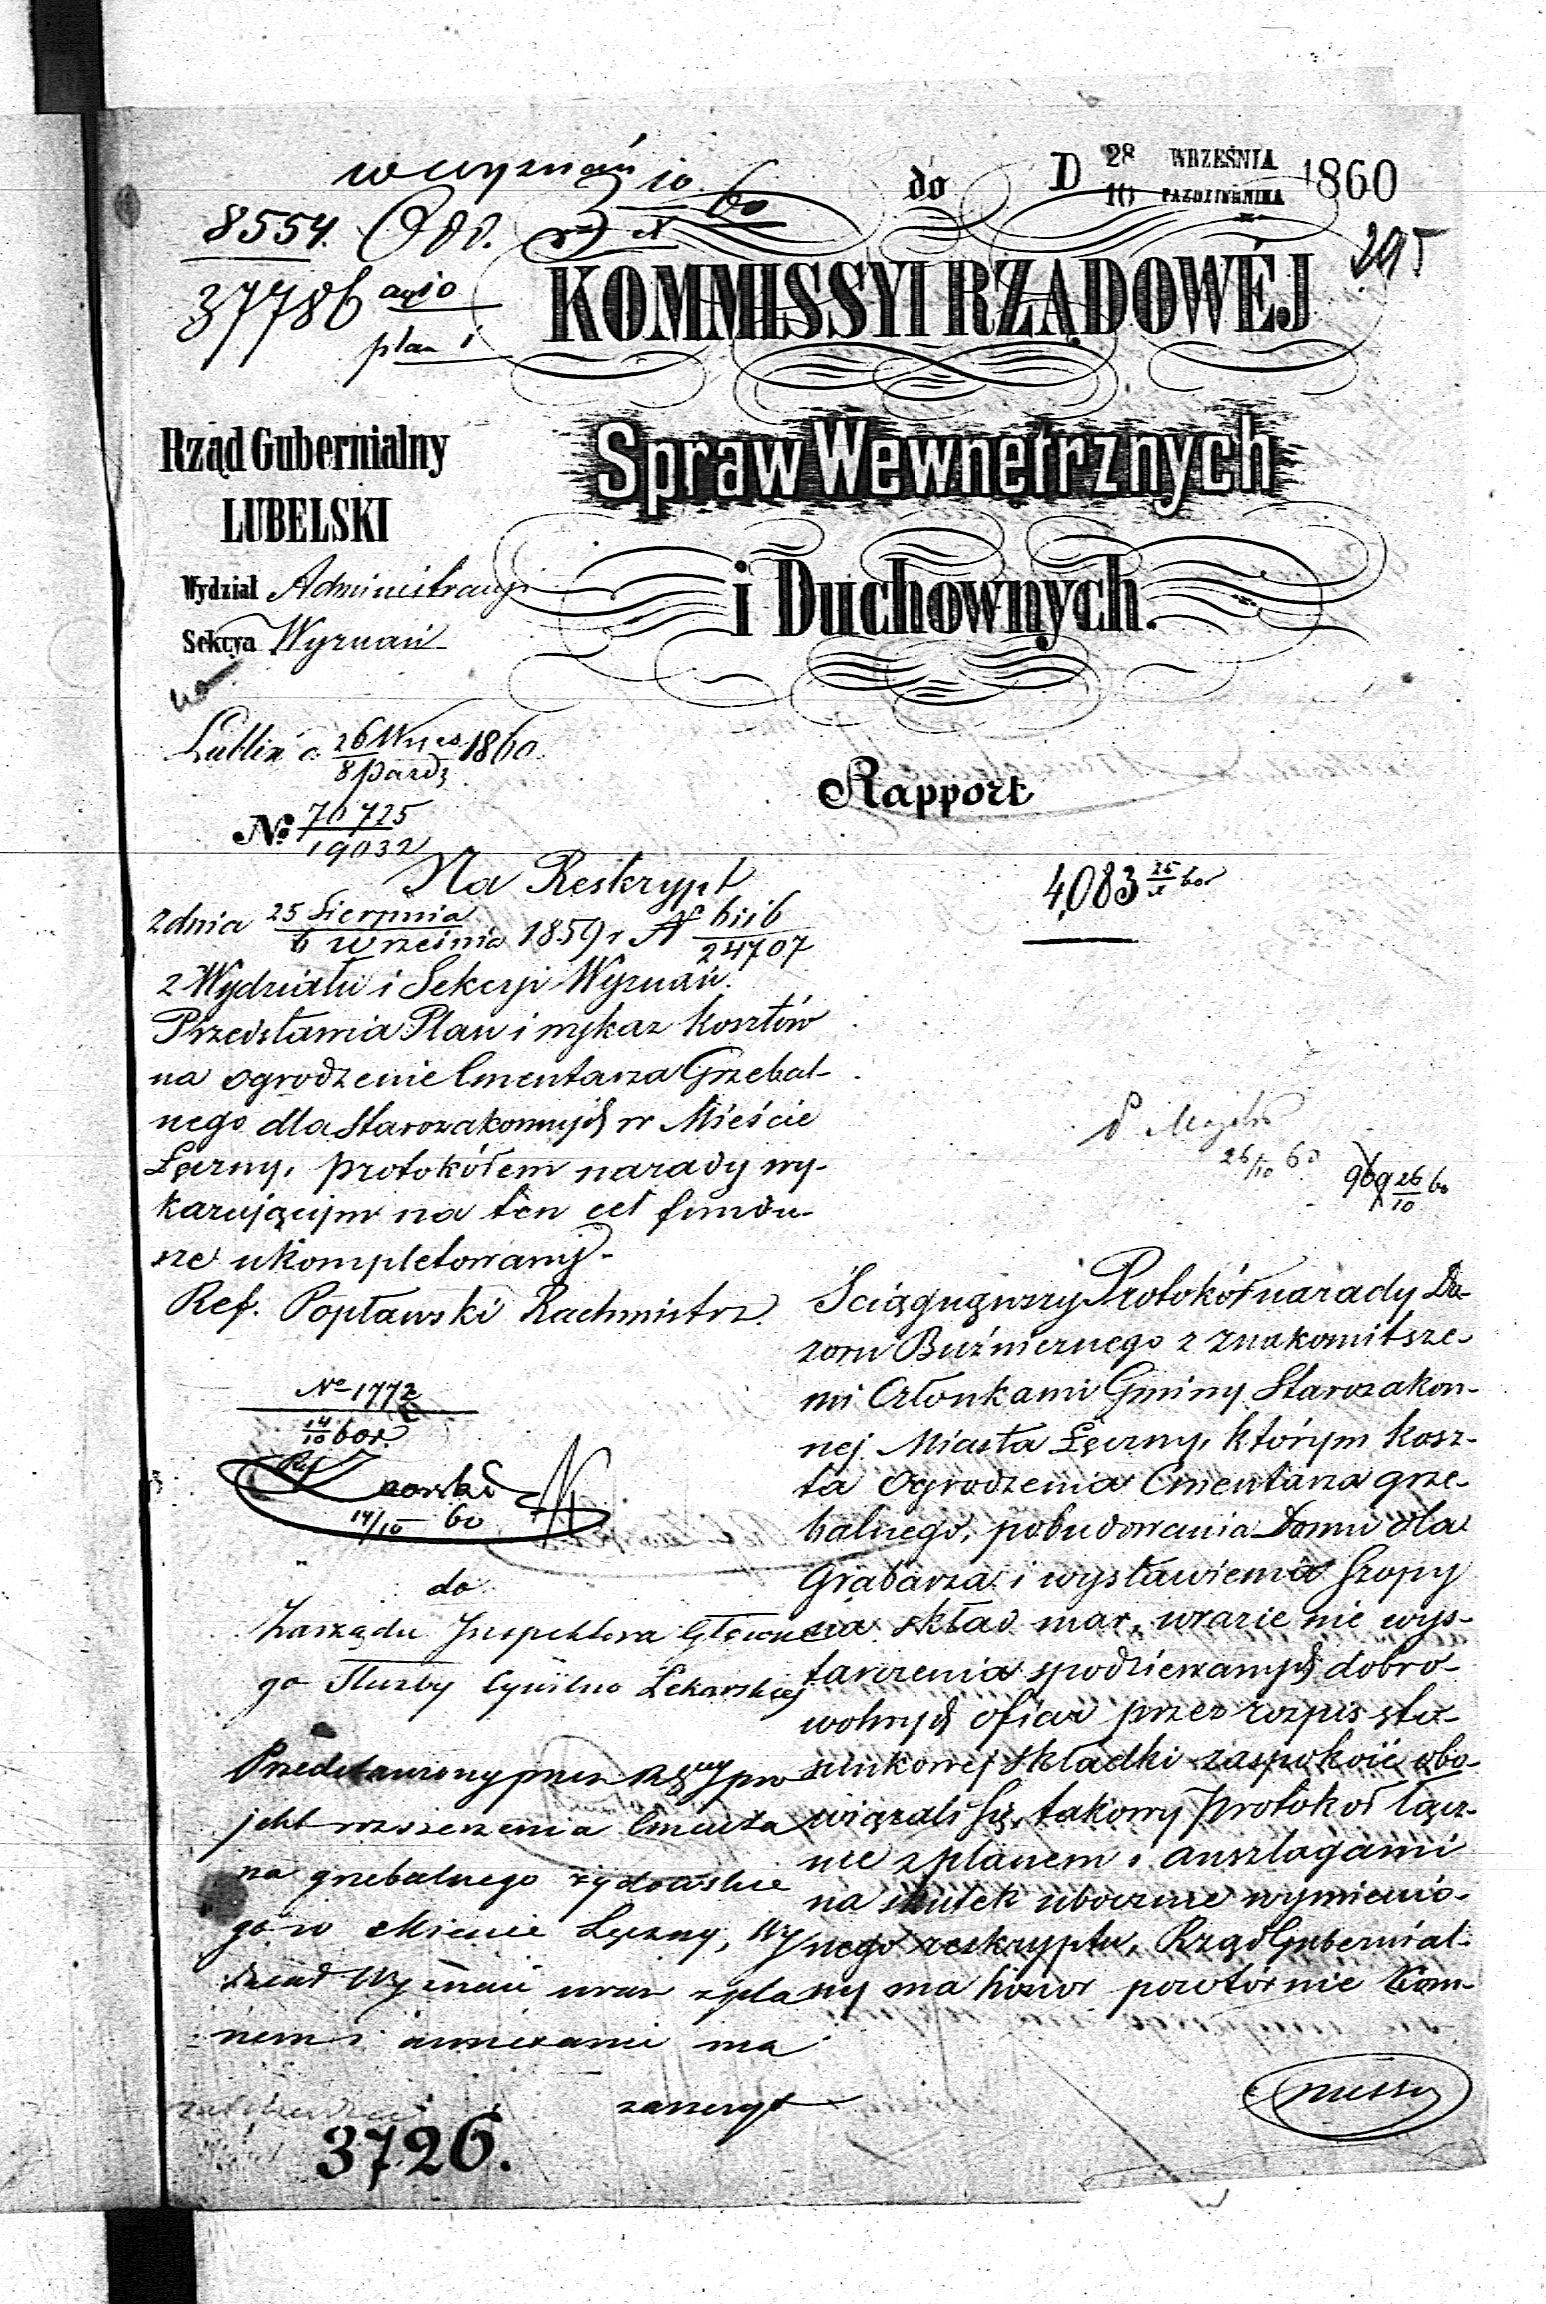 w wyznań
8554. Odd.
37786
plan 1
do
D 28 WRZEŚNIA
10 PAŹDZIERNIKA 1860
295
KOMMISSYI RZĄDOWÉJ
Spraw Wewnętrznych
i Duchownych.
Rząd Gubernialny
LUBELSKI
Wydział Administracyj
Sekcya Wyznań
Lublin d. 26 Wrześ / 8 Paźdz 1860.
No. 70725 / 19032
Rapport
Na Reskrypt
z dnia 25 Sierpnia / 6 Września 1859 r N 6116 / 24707
z Wydziału i Sekcyi Wyznań.
Przedstawia Plan i wykaz kosztów
na ogrodzenie Cmentarza Grzebal-
nego dla Starozakonnych w Mieście
Łęczny, protokółem narady wy-
kazującym na ten cel fundu-
sze ukompletowany.
Ref. Popławski Rachmistrz.
No 1772
14/10 60 r.
14/10 60
4,083 25/x 60r
26/10 60
969 26/10 60
Ściągnąwszy Protokół narady Do-
zoru Bużnicznego z znakomitsze-
mi Członkami Gminy Starozakon-
nej Miasta Łęczny, którym kosz-
ta ogrodzenia Cmentarza grze-
balnego, pobudowania Domu dla
Grabarza i wystawienia szopy
na skład mar, wrazie nie wys-
tarczenia spodziewanych dobro-
wolnych ofiar przez rozpis sto-
sunkowej składki zaspokoić obo-
wiązali się, takowy Protokoł łącz-
nie z planem i anszlagami
na skutek ubocznie wymienio-
nego reskryptu, Rząd Gubernial-
ny ma honor powtórnie Kom-
missy
do
Zarządu Inspektora Główne
go Służby Cywilno Lekarskiej
Przedstawiony przez Rz pro
jekt rozszerzenia Cmenta
rza grzebalnego żydowskie
go w Mieście Łęczny, Wy
dział Wyznań wraz z pla
nem i anneksami ma
zaszczyt
3726.